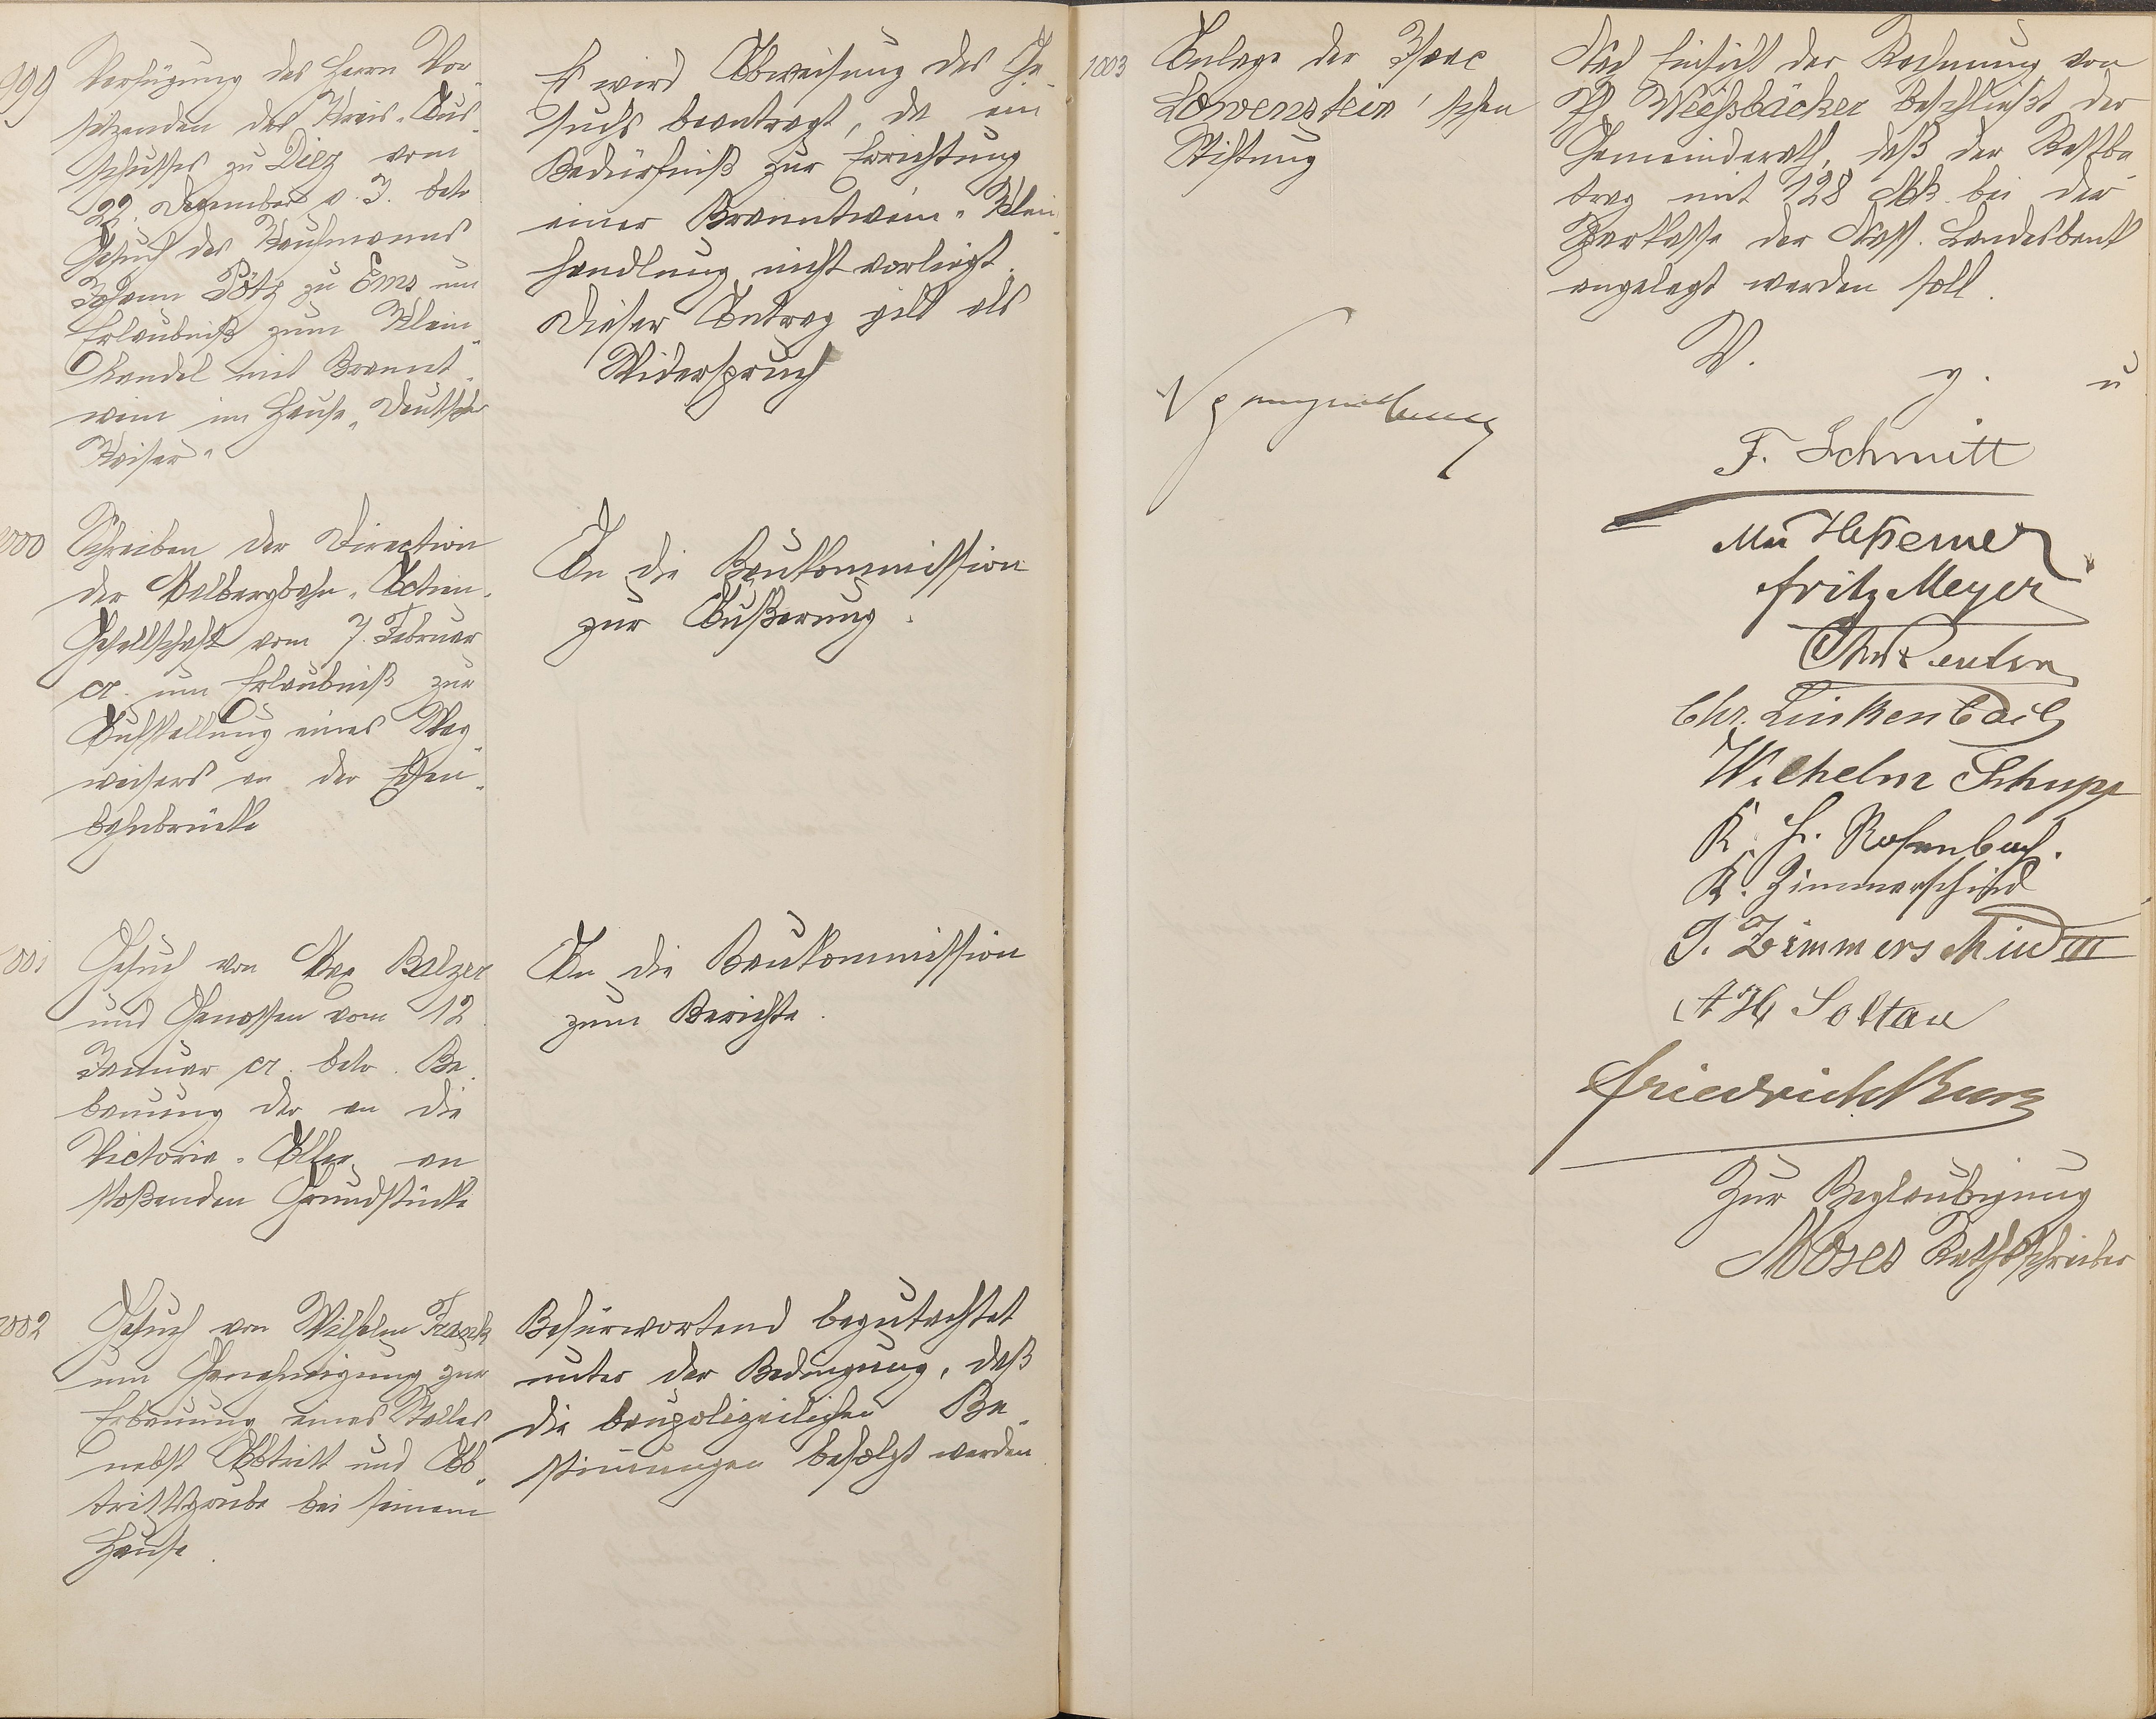 999
Verfügung des Herrn Vor-
sitzenden des Kreis-Aus-
schusses zu Diez vom
22. Dezember v. J. betr
Gesuch des Kaufmanns
Johann Pötz zu Ems um
Erlaubniß zum Klein-
handel mit Brannt-
wein im Hause „Deutscher
Kaiser"
Es wird Abweisung des Ge-
suchs beantragt, da ein
Bedürfniß zur Errichtung
einer Branntwein-Klein-
handlung nicht vorliegt.
Dieser Antrag gilt als
Widerspruch
1000
Schreiben der Direction
der Malbergbahn-Actien-
Gesellschaft vom 7. Februar
cr. um Erlaubniß zur
Aufstellung eines Weg-
weisers an der Eisen-
bahnbrücke
An die Baukommission
zur Äußerung.
1001
Gesuch von Max Balzer
und Genossen vom 12.
Januar cr. betr. Be-
bauung der an die
Victoria-Allee an
stoßenden Grundstücke
An die Baukommission
zum Berichte.
1002
Gesuch von Wilhelm Frank
um Genehmigung zur
Erbauung eines Stalles
nebst Abtritt und Ab-
trittsgrube bei seinem
Hause.
Befürwortend begutachtet
unter der Bedingung, daß
die baupolizeilichen Be-
stimmungen befolgt werden
1003
Anlage der Isaac
Löwenstein'schen
Stiftung
Nach Einsicht der Rechnung von
Ph Weißbäcker beschließt der
Gemeinderath, daß der Restbe-
trag mit 128 Mk. bei der
Sparkasse der Nass. Landesbank
angelegt werden soll.
V. g. u
F. Schmitt
Heßemer
Fritz Meyer
Chr. Linkenbach
Wilhelm Schupp
K. H. Rosenbach.
K. Zimmerschied
J. Zimmerschied III
A H Soltau
Friedrich Kurz
Zur Beglaubigung
Moses Rathsschreiber